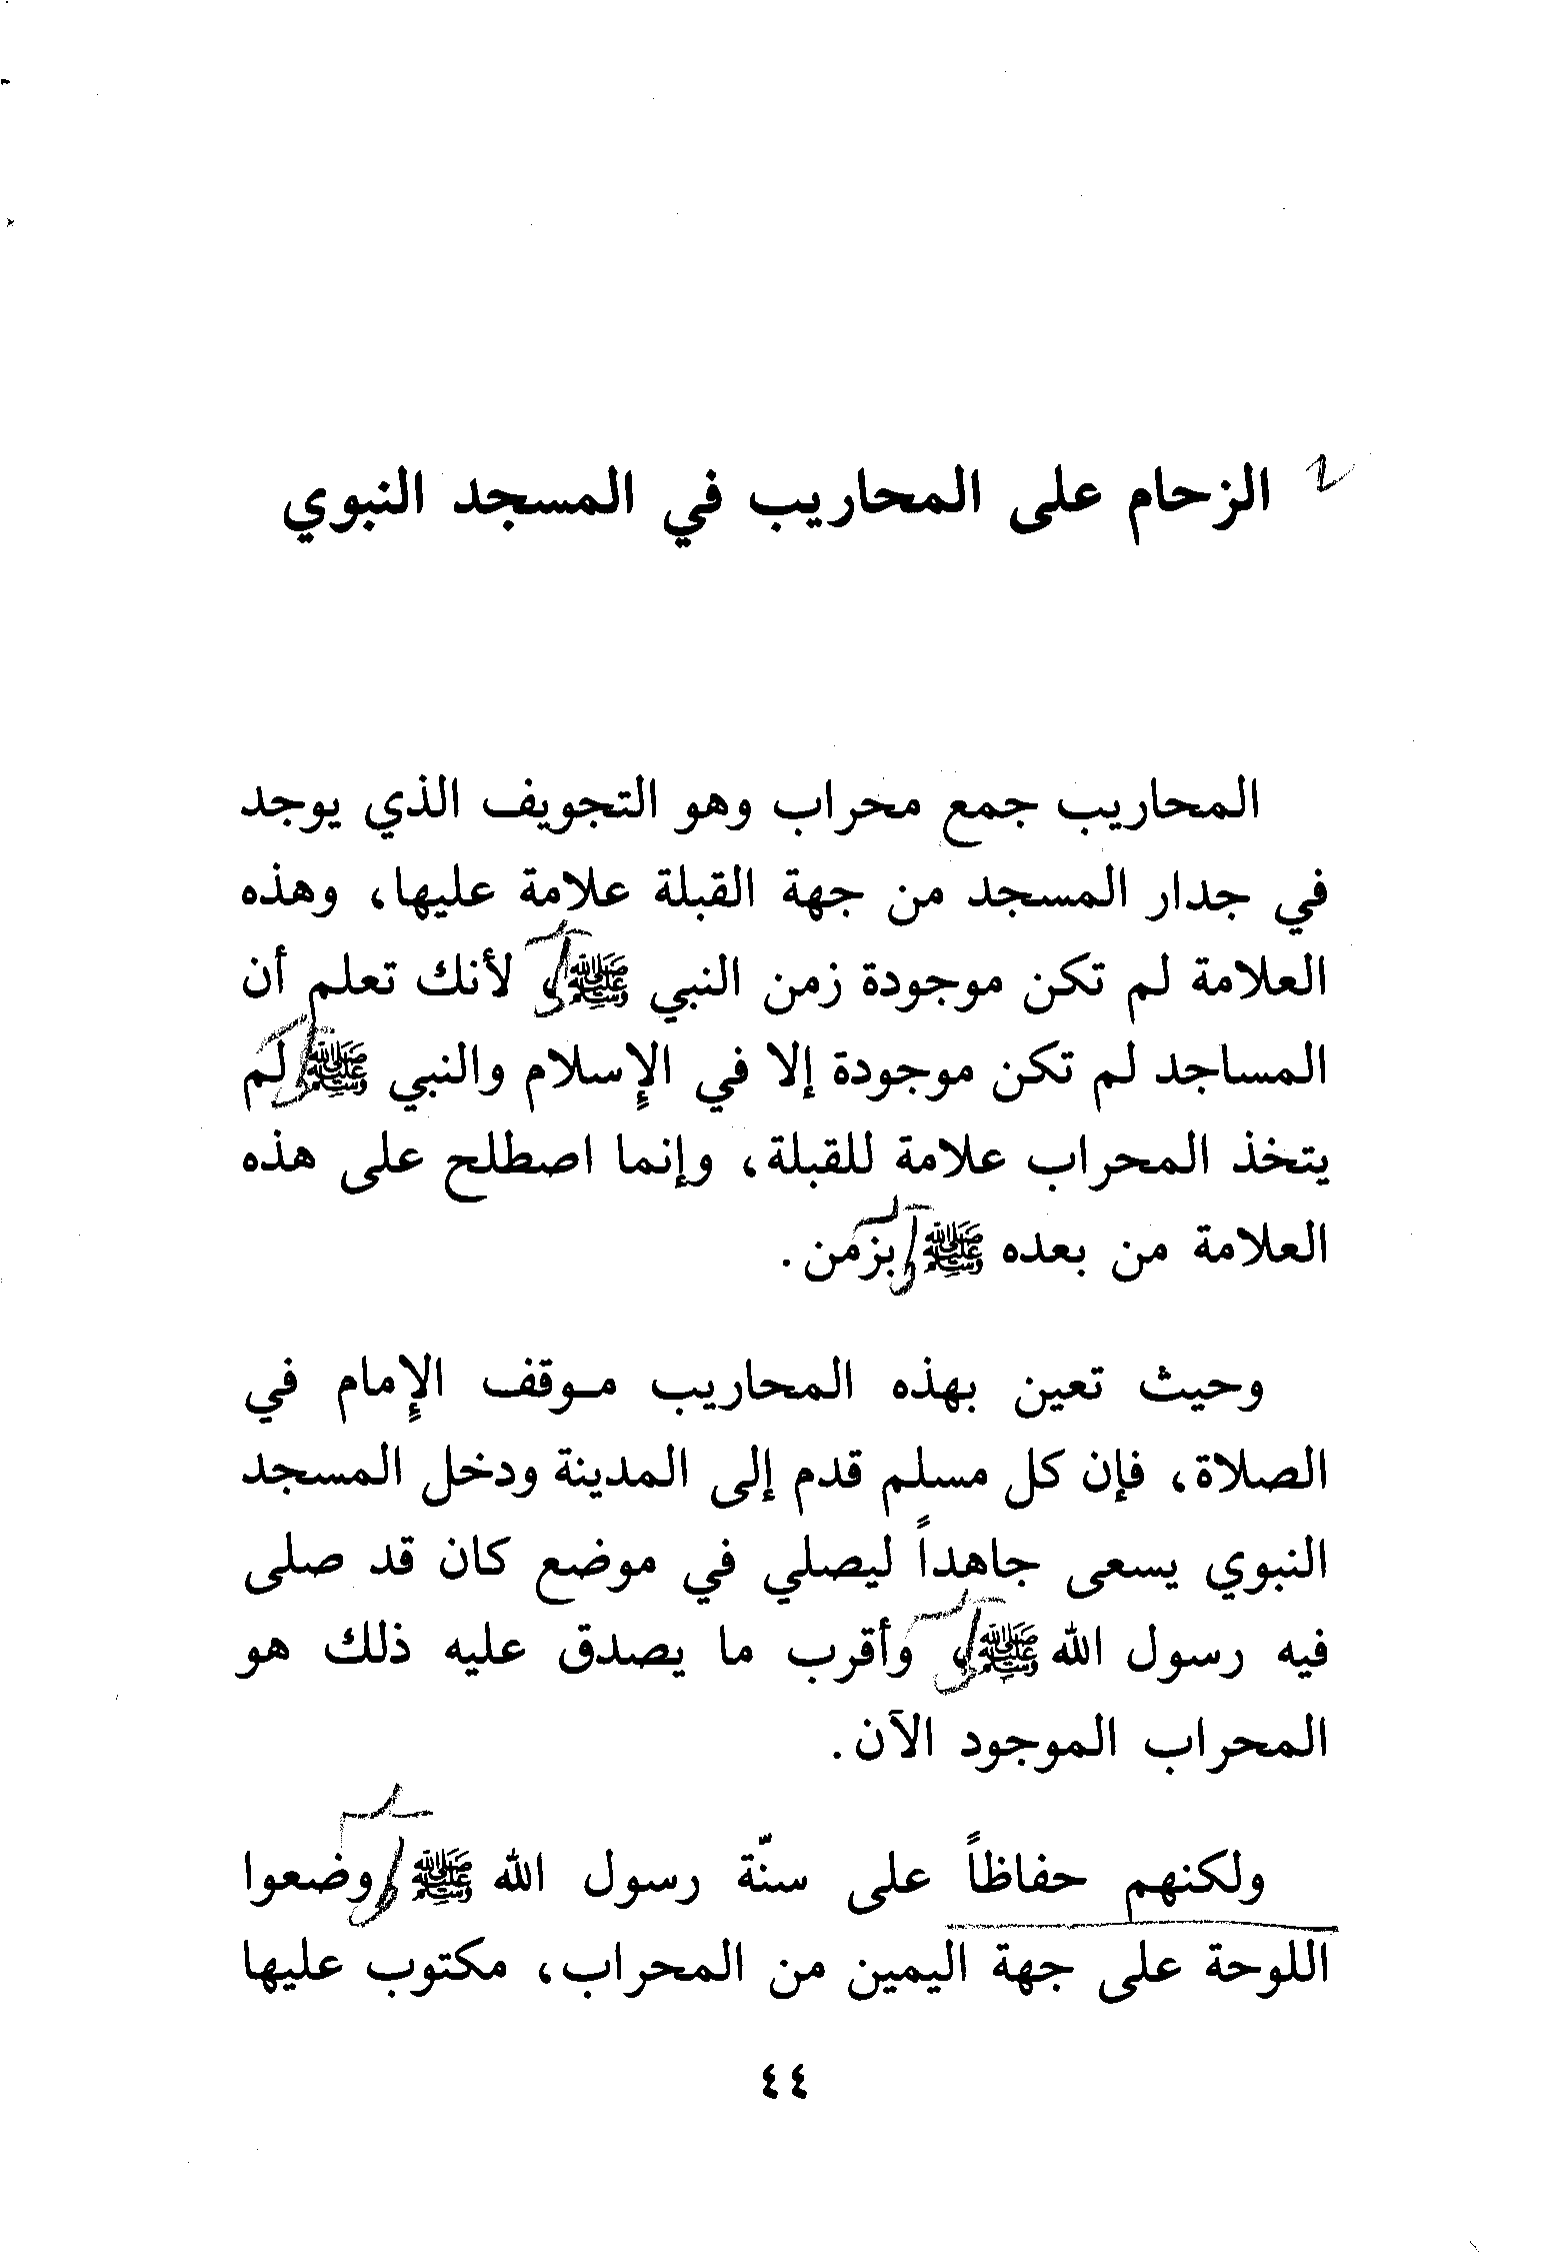 الزحام على المحاريب في المسجد النبوي
المحاريب جمع محراب وهو التجويف الذي يوجد
في جدار المسجد من جهة القبلة علامة عليها، وهذه
العلامة لم تكن موجودة زمن النبي ﷺ، لأنك تعلم أن
المساجد لم تكن موجودة إلا في الإسلام والنبي ﷺ لم
يتخذ المحراب علامة للقبلة، وإنما اصطلح على هذه
العلامة من بعده ﷺ بزمن.
وحيث تعين بهذه المحاريب مـوقف الإمام في
الصلاة، فإن كل مسلم قدم إلى المدينة ودخل المسجد
النبوي يسعى جاهداً ليصلي في موضع كان قد صلى
فيه رسول الله ﷺ، وأقرب ما يصدق عليه ذلك هو
المحراب الموجود الآن.
ولكنهم حفاظاً على سنّة رسول الله ﷺ وضعوا
اللوحة على جهة اليمين من المحراب، مكتوب عليها
٤٤